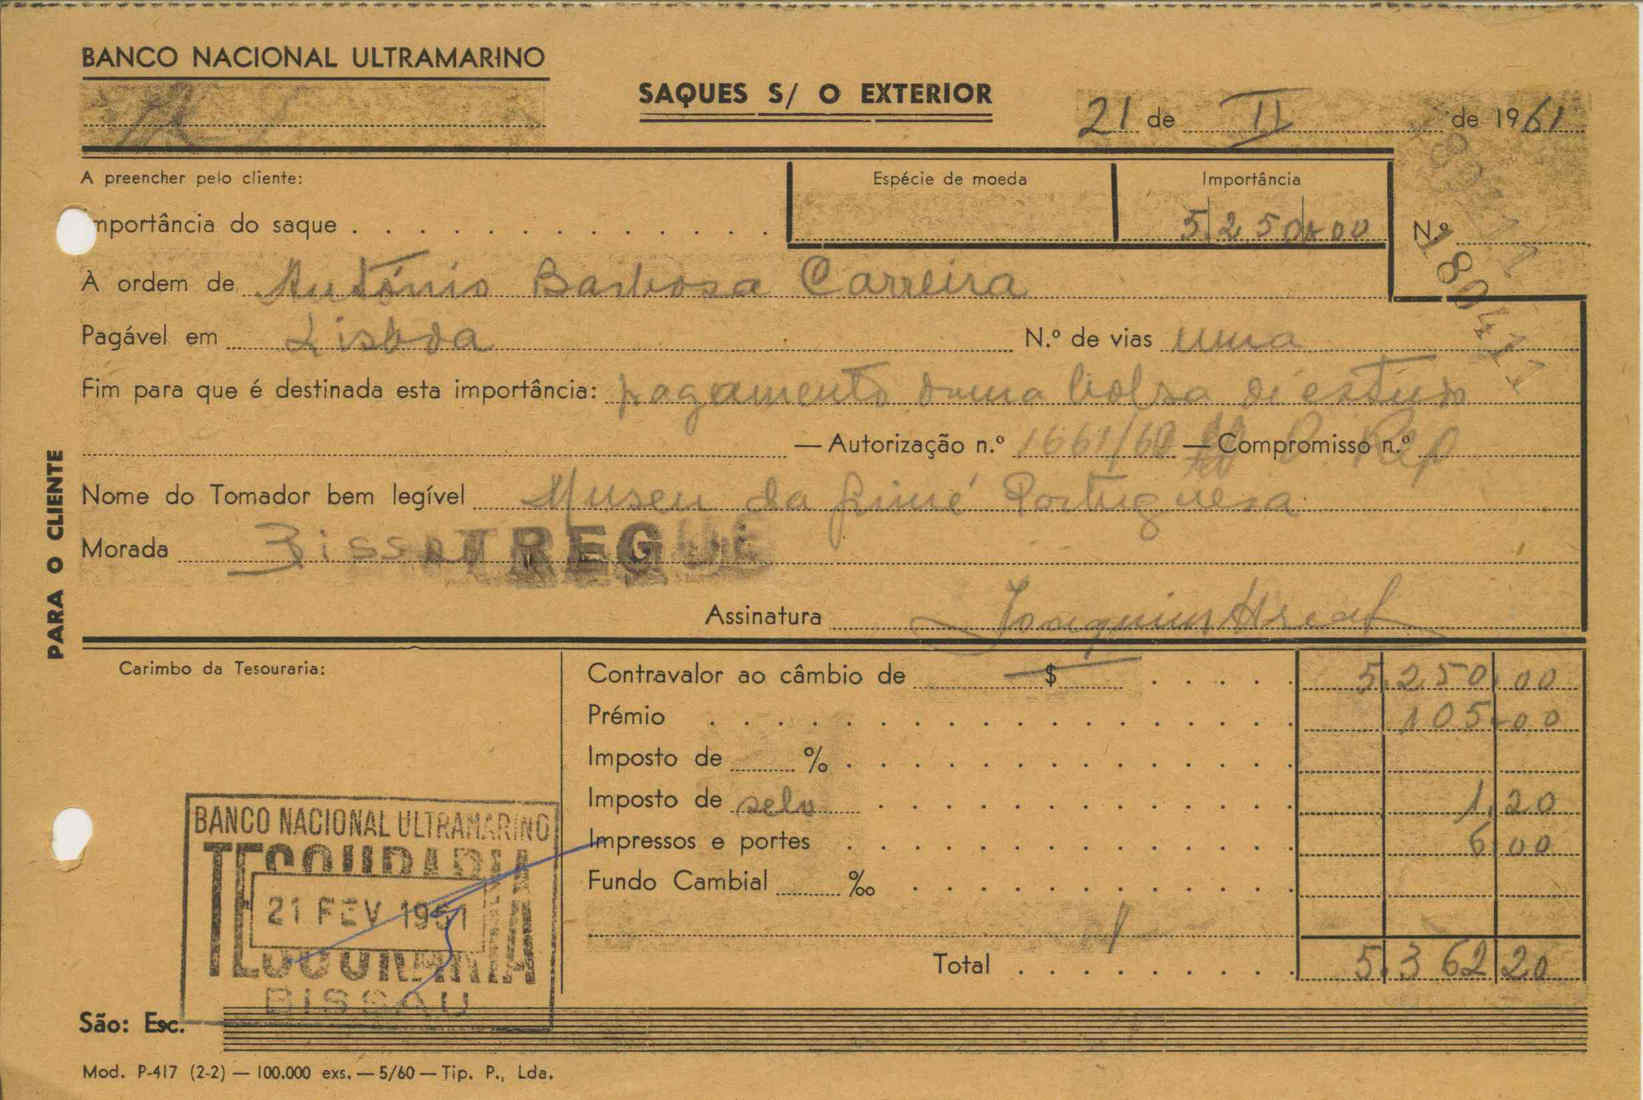 BANCO NACIONAL ULTRAMARINO
SAQUES S/ O EXTERIOR
21 de II de 1961
A preencher pelo cliente:
Espécie de moeda
Importância
mportância do saque . . . . . . . . . . . . . 5.250,00
N.º 180411
À ordem de António Barbosa Carreira
Pagável em Lisboa N.º de vias uma
Fim para que é destinada esta importância: pagamento duma bolsa de estudo
— Autorização n.º 1661/60 — Compromisso n.º
Nome do Tomador bem legível Museu da Guiné Portuguesa
Morada Bissau
TREGUE
Assinatura Joaquim Areal
PARA O CLIENTE
Carimbo da Tesouraria:
Contravalor ao câmbio de $ . . . . . 5.250,00
Prémio . . . . . . . . . . . . . . . . . . 105,00
Imposto de % . . . . . . . . . . . . . .
Imposto de selo . . . . . . . . . . . . . 1,20
Impressos e portes . . . . . . . . . . . . . . 6,00
Fundo Cambial ‰ . . . . . . . . . . . .
Total . . . . . . . . . 5.362,20
BANCO NACIONAL ULTRAMARINO
TESOURARIA
21 FEV 1961
TESOURARIA
BISSAU
São: Esc.
Mod. P-417 (2-2) — 100.000 exs. — 5/60 — Tip. P., Lda.